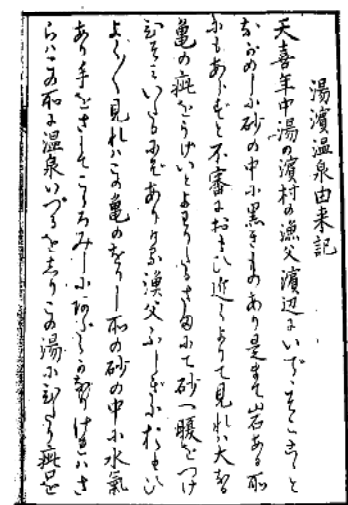 湯濱温泉由来記
天喜年中湯の濱村の漁父濱辺にいでゝそここゝと
ながめしに砂の中に黒きものあり是まで岩ある所
にもあらずと不審におもひ近くよりて見れハ大なる
亀の疵をうけいとよわりたるさまにて砂へ腹をつけ
ひそミいたるにぞありける漁父ふしぎにおもひ
よく〳〵見れハこの亀のをりし所の砂の中に水氣
あり手をさしてこゝろみしに
らハこの所に温泉いづるをしりこの湯にひたり疵を